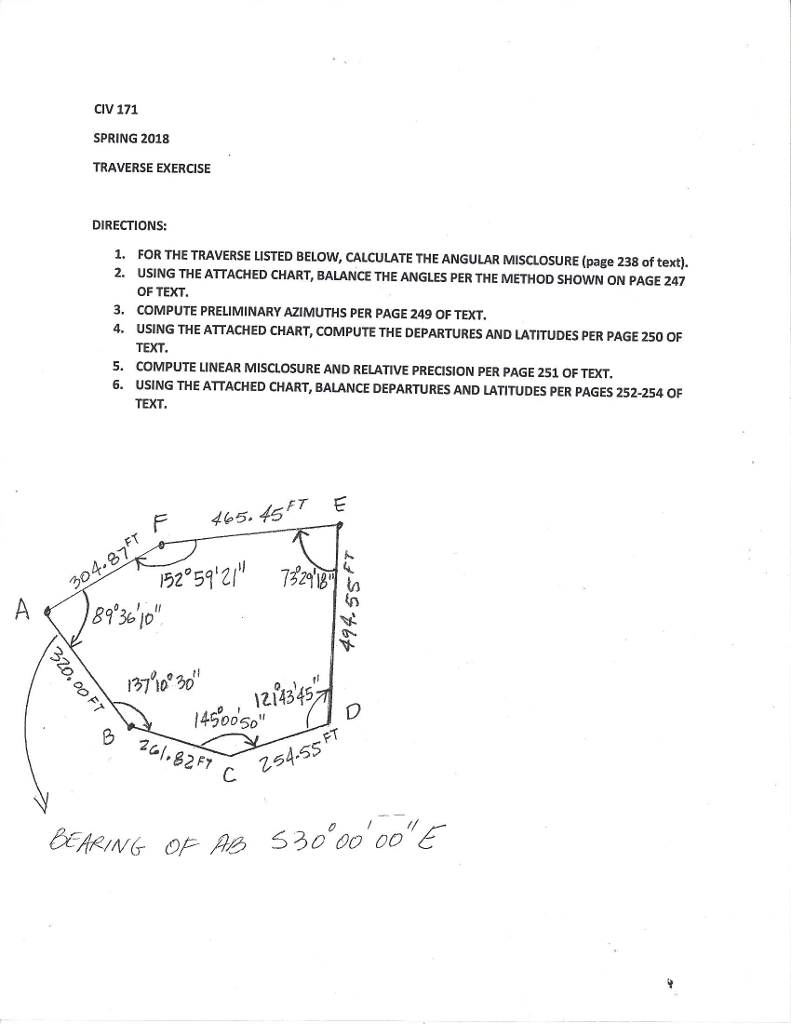 CIV 171
SPRING 2018
TRAVERSE EXERCISE
DIRECTIONS:
1. FOR THE TRAVERSE LISTED BELOW, CALCULATE THE ANGULAR MISCLOSURE (page 238 of text).
2. USING THE ATTACHED CHART, BALANCE THE ANGLES PER THE METHOD SHOWN ON PAGE 247
OF TEXT.
3. COMPUTE PRELIMINARY AZIMUTHS PER PAGE 249 OF TEXT.
4. USING THE ATTACHED CHART, COMPUTE THE DEPARTURES AND LATITUDES PER PAGE 250 OF
TEXT.
5. COMPUTE LINEAR MISCLOSURE AND RELATIVE PRECISION PER PAGE 251 OF TEXT.
6. USING THE ATTACHED CHART, BALANCE DEPARTURES AND LATITUDES PER PAGES 252-254 OF
TEXT.
E
465.45 FT
F
304.87 FT
152°59'21"
73°29'18"
494.55 FT
A
89°36'10"
320.00 FT
137°10'30"
121°43'45"
145°00'50"
D
B
261.82 FT
C
254.55 FT
BEARING OF AB S30°00'00"E